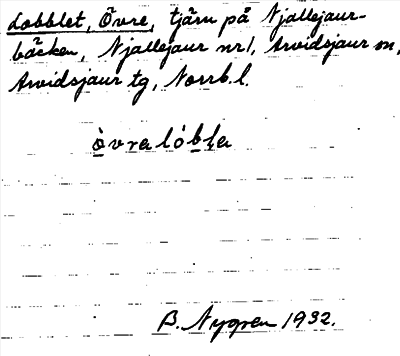 Lobblet, Övre, tjärn på Njallejaur-
bäcken, Njallejaur nr1, Arvidsjaur sn,
Arvidsjaur tg, Norrb.l.
òvralóbla
B. Nygren 1932.